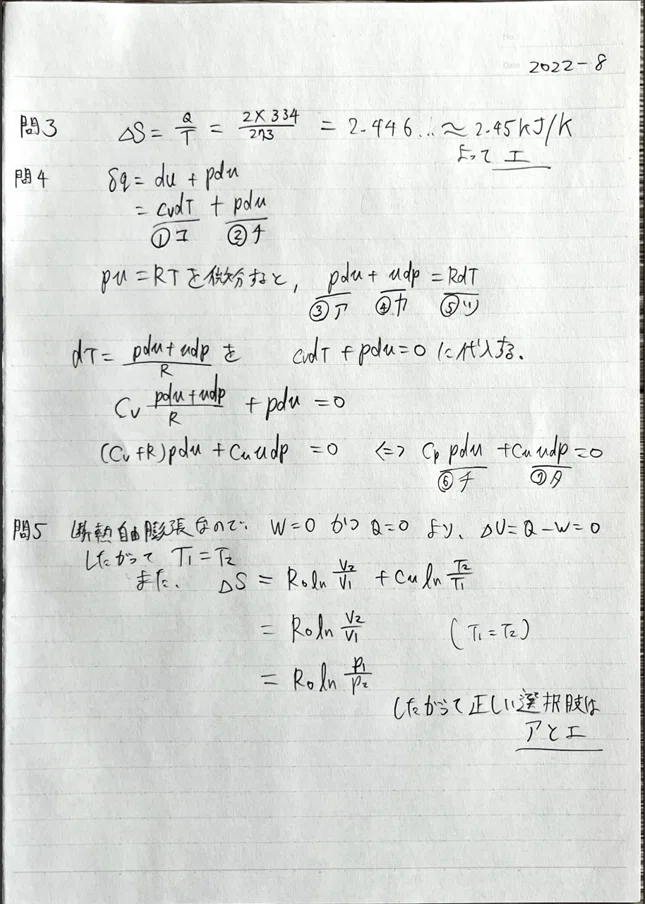 No.
Date
2022-8
問3 ΔS = Q/T = 2×334/273 = 2.446... ≈ 2.45kJ/K
よって エ
問4 δq = du + pdu
= cvdT + pdu
①コ ②チ
pu = RT を微分すると, pdu + udp = RdT
③ア ④カ ⑤ツ
dT = pdu+udp/R を cvdT + pdu = 0 に代入する.
Cv pdu+udp/R + pdu = 0
(Cv+R)pdu + Cu udp = 0 ⇔ Cp pdu + Cu udp = 0
⑥チ ⑦タ
問5 断熱自由膨張なので. W=0 かつ Q=0 より、ΔU = Q-W = 0
したがって T1 = T2
また. ΔS = R0 ln V2/V1 + Cu ln T2/T1
= R0 ln V2/V1 (T1=T2)
= R0 ln P1/P2
したがって正しい選択肢は
アとエ